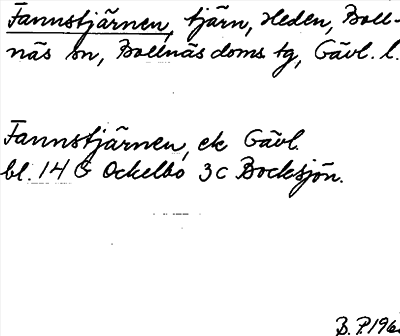 Fannstjärnen, tjärn, Heden, Boll-
näs sn, Bollnäs doms. tg, Gävl. l.
Fannstjärnen, ek Gävl.
bl. 14 G Ockelbo 3c Bocksjön.
B. P. 196